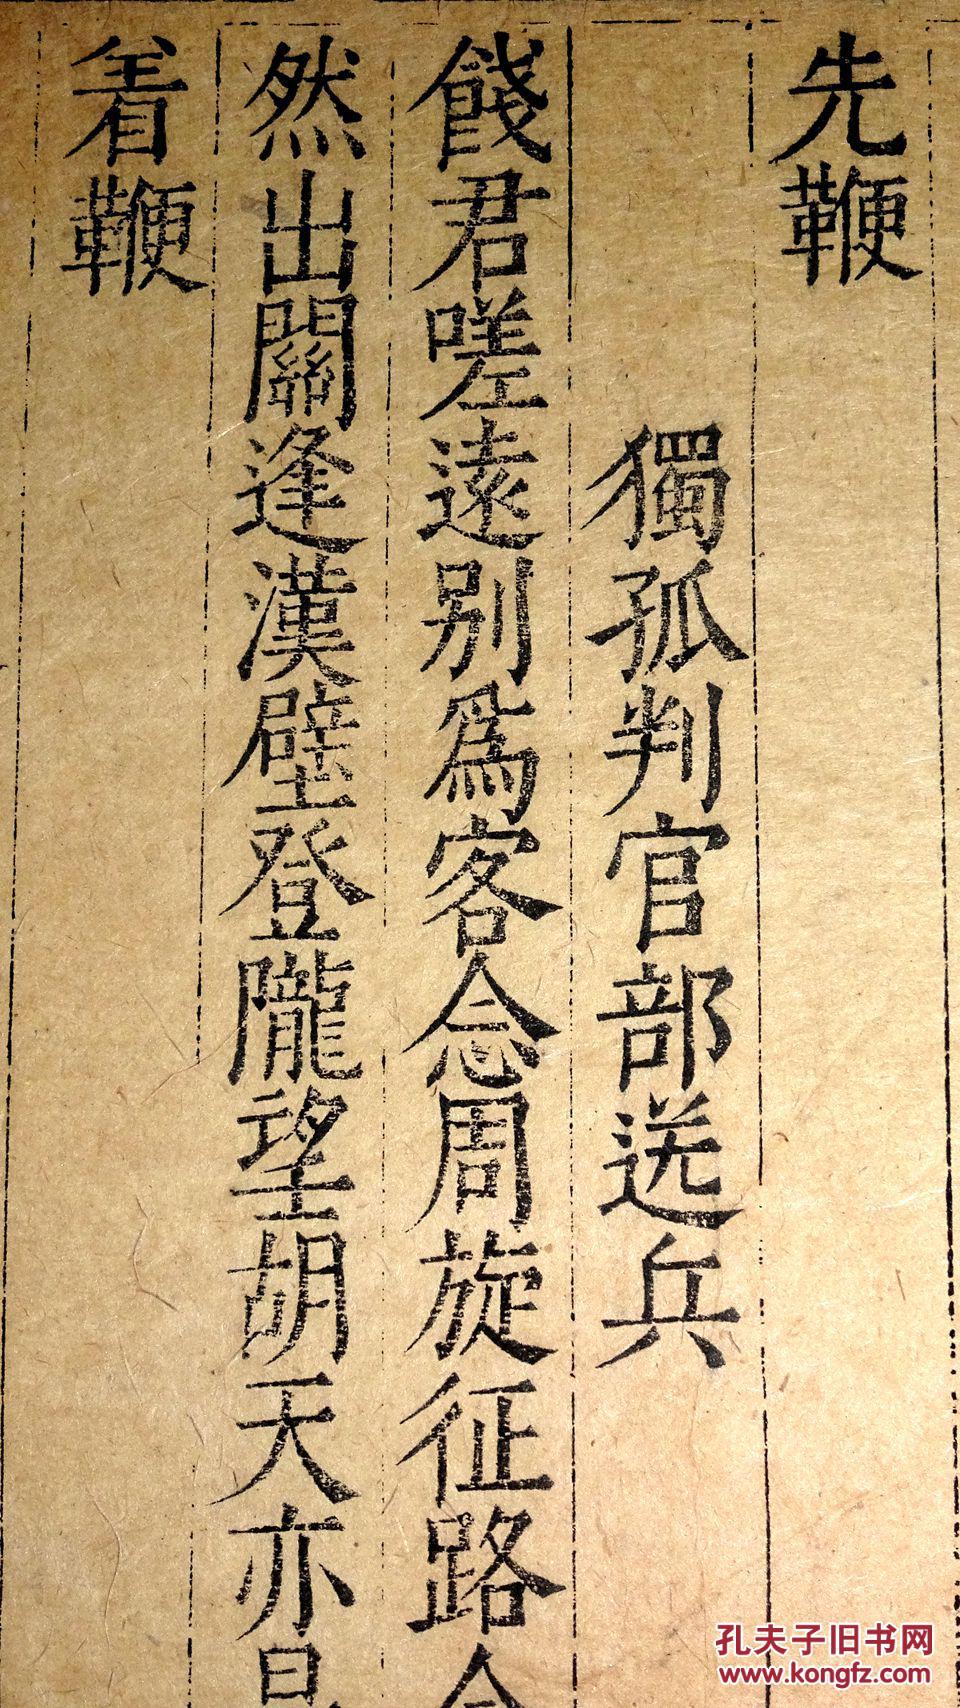 先鞭
獨孤判官部送兵
餞君嗟遠別爲客念周旋征路
然出關逢漢壁登隴望胡天亦
着鞭
孔夫子旧书网
www.kongfz.com